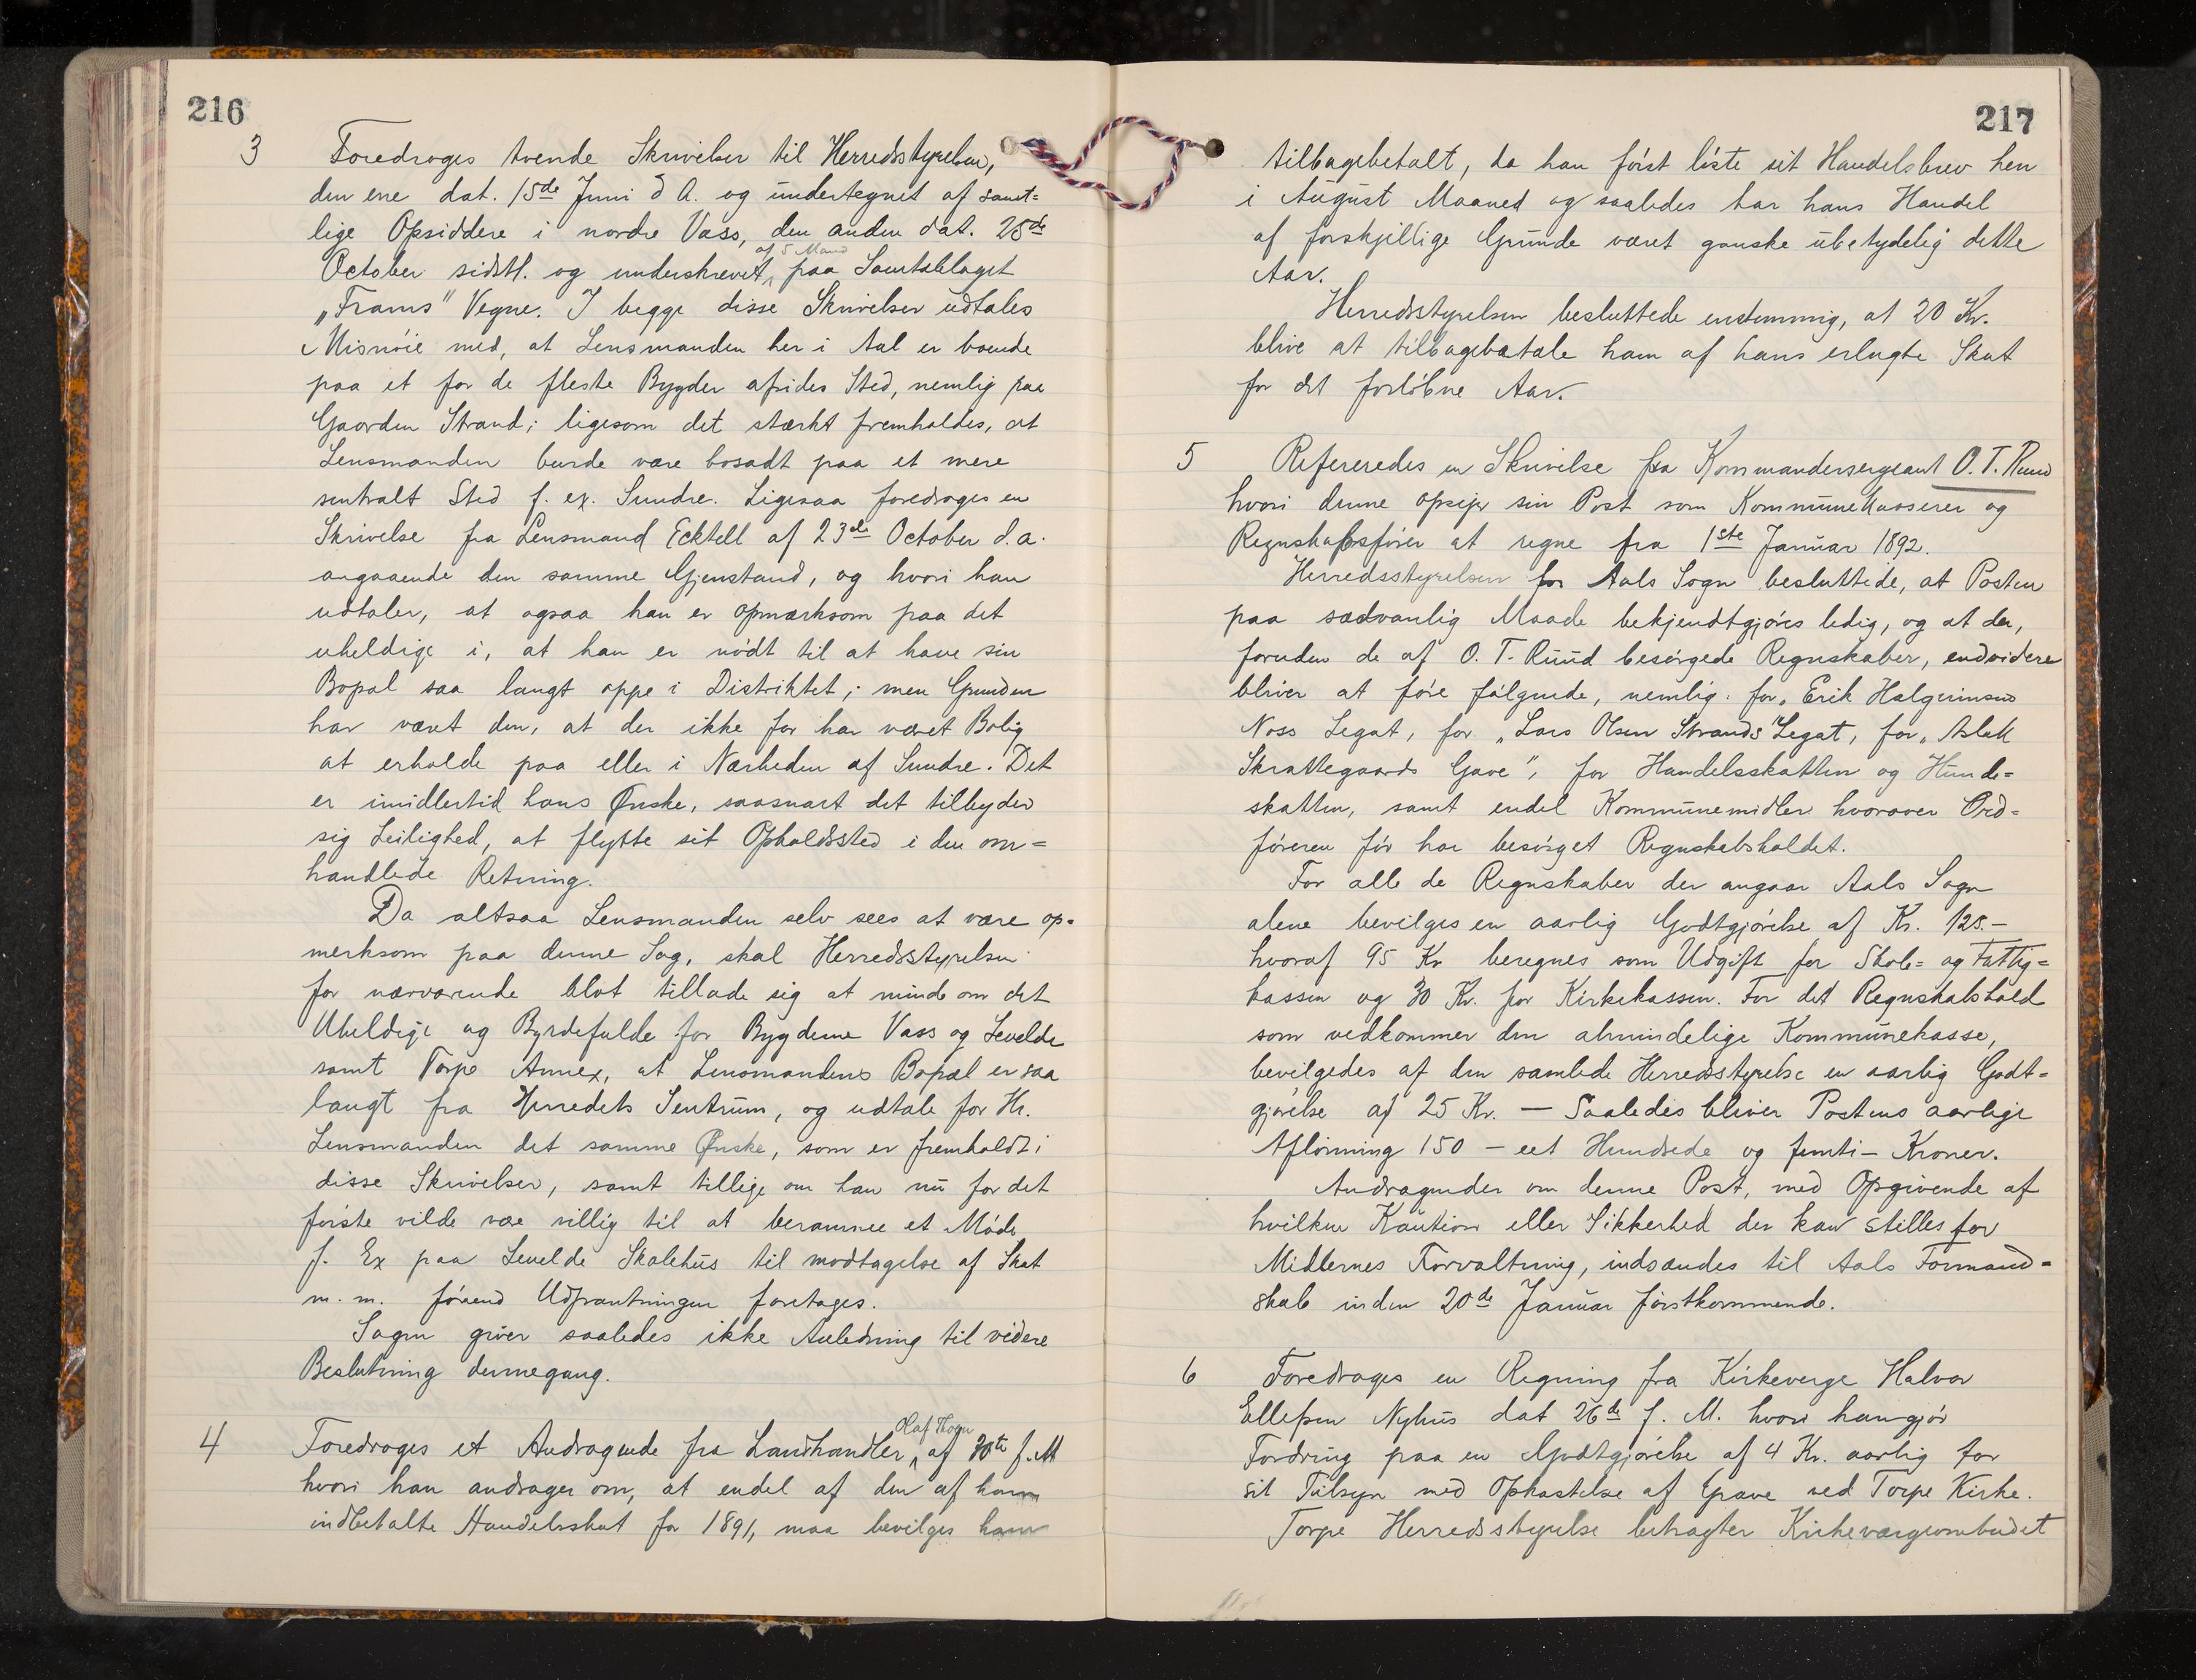 216
3 Foredroges tvende Skrivelser til Herredsstyrelsen,
den ene dat. 15de Juni d A. og undertegnet af samt=
lige Opsiddere i nordre Vass, den anden dat. 25de
af 5 Mand
October sidstl. og underskrevet paa Samtalelaget
„Frams" Vegne. I begge disse Skrivelser udtales
Misnöie med, at Lensmanden her i Aal er boende
paa et for de fleste Bygder afsides Sted, nemlig paa
Gaarden Strand; ligesom det stærkt fremholdes, at
Lensmanden burde være bosadt paa et mere
sentralt Sted f. ex. Sundre. Ligesaa foredroges en
Skrivelse fra Lensmand Ecktell af 23de October d. a.
angaaende den samme Gjenstand, og hvori han
udtaler, at ogsaa han er opmærksom paa det
uheldige i, at han er nödt til at have sin
Bopal saa langt oppe i Distriktet; men Grunden
har været den, at der ikke for har været Bolig
at erholde paa eller i Nærheden af Sundre. Det
er imidlertid hans Ønske, saasnart det tilbyder
sig Leilighed, at flytte sit Opholdssted i den om=
handlede Retning.
Da altsaa Lensmanden selv sees at være op=
merksom paa denne Sag, skal Herredsstyrelsen
for nærværende blot tillade sig at minde om det
Uheldige og Byrdefulde for Bygderne Vass og Levelde
samt Torpe Annex, at Lensmandens Bopæl er saa
langt fra Herredets Sentrum, og udtale for Hr.
Lensmanden det samme Ønske, som er fremholdt i
disse Skrivelser, samt tillige om han nu for det
förste vilde være villig til at beramme et Möde
f. Ex paa Levelde Skolehus til modtagelse af Skat
m. m. förend Udpantningen foretages.
Sagen giver saaledes ikke Anledning til videre
Beslutning dennegang.
Olaf Thoen
4 Foredroges et Andragende fra Landhandler af 30te f. M
hvori han andrager om, at endel af den af ham
indbetalte Handelsskat for 1891, maa bevilges ham
217
tilbagebetalt, da han först löste sit Handelsbrev hen
i August Maaned og saaledes har hans Handel
af forskjellige Grunde været ganske ubetydelig dette
Aar.
Herredsstyrelsen besluttede enstemmig, at 20 Kr.
blive at tilbagebetale ham af hans erlagte Skat
for det forlöbne Aar.
5 Refereredes en Skrivelse fra Kommandersergeant O. T. Ruud
hvori denne opsiger sin Post som Kommunekasserer og
Regnskabsförer at regne fra 1ste Januar 1892.
Herredsstyrelsen for Aals Sogn besluttede, at Posten
paa sædvanlig Maade bekjendtgjöres ledig, og at der,
foruden de af O. T. Ruud besörgede Regnskaber, endvidere
bliver at före fölgende, nemlig: for „Erik Halgrimsens
Noss Legat, for „Lars Olsen Strands Legat, for „Aslak
Skrattegaards Gave", for Handelsskatten og Hunde=
skatten, samt endel Kommunemidler hvorover Ord=
föreren för har besörget Regnskabsholdet.
For alle de Regnskaber der angaar Aals Sogn
alene bevilges en aarlig Godtgjörelse af Kr. 125.–
hvoraf 95 Kr beregnes som Udgift for Skole= og Fattig=
kassen og 30 Kr. for Kirkekassen. For det Regnskabshold
som vedkommer den almindelige Kommunekasse,
bevilgedes af den samlede Herredsstyrelse en aarlig Godt=
gjörelse af 25 Kr. — Saaledes bliver Postens aarlige
Aflönning 150 – eet Hundrede og femti – Kroner.
Andragender om denne Post, med Opgivende af
hvilken Kaution eller Sikkerhed der kan stilles for
Midlernes Forvaltning, indsendes til Aals Formand=
skab inden 20de Januar förstkommende.
6 Foredroges en Regning fra Kirkeverge Halvor
Ellefsen Nyhus dat 26de f. M. hvori han gjör
Fordring paa en Godtgjörelse af 4 Kr. aarlig for
sit Tilsyn med Opkastelse af Grave ved Torpe Kirke.
Torpe Herredsstyrelse betragter Kirkevergeombudet